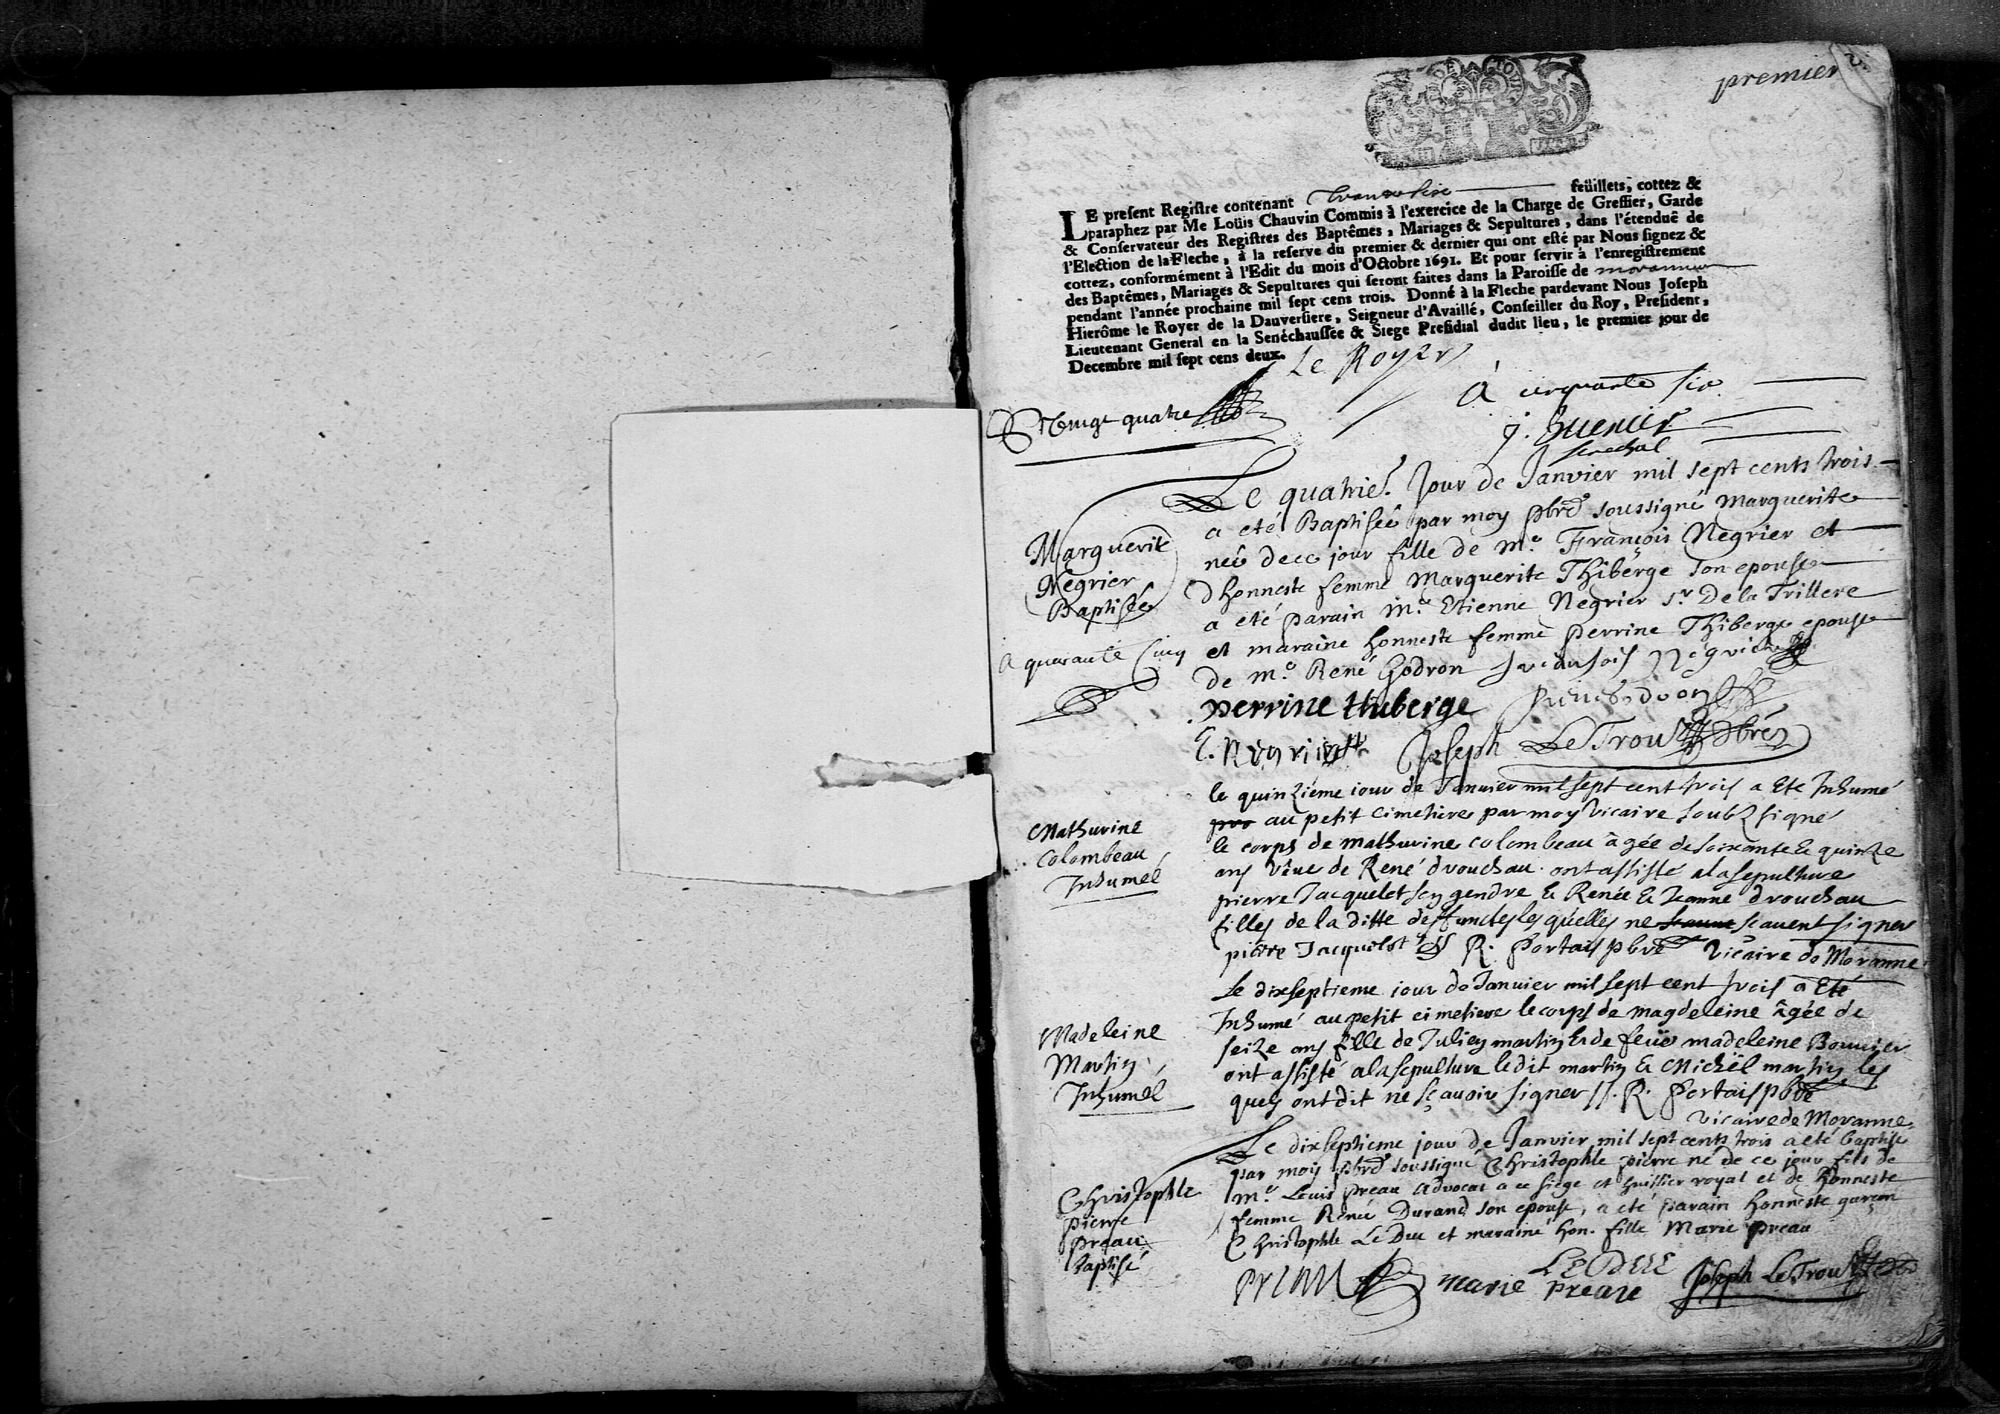 premier
LE present Registre contenant trente six feüillets, cottez &
paraphez par Me Loüis Chauvin Commis à l'exercice de la Charge de Greffier, Garde
& Conservateur des Registres des Baptêmes, Mariages & Sepultures, dans l'étenduë de
l'Election de la Fleche, à la reserve du premier & dernier qui ont esté par Nous signez &
cottez, conformément à l'Edit du mois d'Octobre 1691. Et pour servir à l'enregistrement
des Baptêmes, Mariages & Sepultures qui seront faites dans la Paroisse de moranne
pendant l'année prochaine mil sept cens trois. Donné à la Fleche pardevant Nous Joseph
Hierôme le Royer de la Dauversiere, Seigneur d'Availlé, Conseiller du Roy, President,
Lieutenant General en la Senéchaussée & Siege Presidial dudit lieu, le premier jour de
Decembre mil sept cens deux.
Le Royer
À cinquante six
Vingt quatre
senechal
Le quatrie. Jour de Janvier mil sept cents trois
a eté Baptisée par moy pbre soussigné Marguerite
neé de ce jour fille de Me. François Negrier et
dhonneste femme Marguerite Thiberge son epouse
a eté parain Me. Etienne Negrier sr. De la Trillere
et maraine honneste femme perrine Thiberge epouse
de Me. René Godron
Negrier
Marguerite
Negrier
Baptisée
a quarante Cinq
perrine thiberge
E. Negrier
Joseph LeTrou pbre
le quinziéme iour de Januier mil sept cent trois a Eté Inhumé
au petit cimetiere par moy vicaire soubzsigné
le corps de mathurine colombeau âgée de soixante & quinze
ans véue de René drouchau ont assisté a la sepulture
pierre Jacquelot son gendre & Renée & Jeanne drouchau
filles de la ditte deffuncte lesquelles ne scauent signer
pierre Jacquelot R. Portais pbre vicaire de Moranne
Mathurine
Colombeau
Inhumée
Le dixseptieme iour de Januier mil sept cent trois a Eté
Inhumé au petit cimetiere le corps de magdeleine âgée de
seize ans fille de Julien martin & de feüe madeleine Bouuier
ont assisté a la sepulture ledit martin & Michël martin les
quels ont dit ne sçauoir signer R. Portais pbre
vicaire de Moranne
Madeleine
Martin
Inhumée
Le dixseptieme jour de Janvier mil sept cents trois a eté baptisé
par moy pbre soussigné Christophle pierre né de ce jour fils de
Me. Louis preau Advocat a ce siege et huissier royal et de honneste
femme Renée Durand son epouse, a eté parain honneste garçon
Christophle LeDuc et maraine hon. fille Marie preau
Christophle
pierre
preau
baptisé
Preau
LEDUC
marie preau
Joseph LeTrou pbre